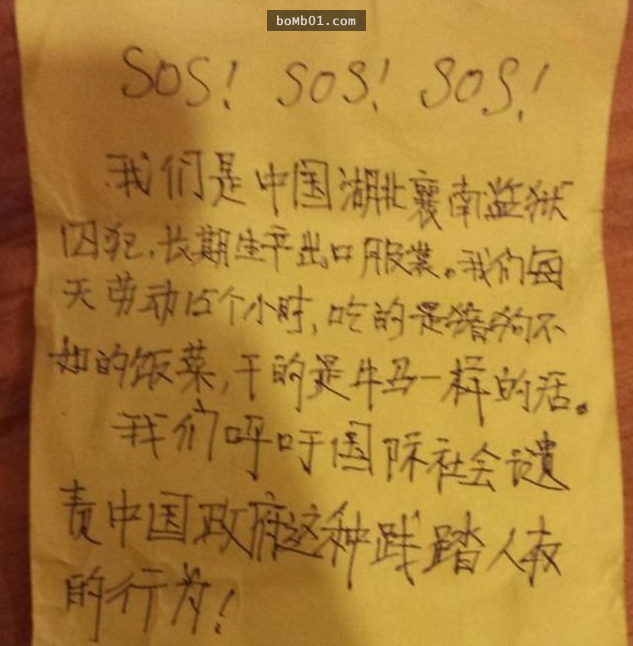 boMb01.com
SOS! SOS! SOS!
我们是中国湖北襄南监狱
囚犯,长期生产出口服装。我们每
天劳动15个小时,吃的是猪狗不
如的饭菜,干的是牛马一样的活。
我们呼吁国际社会谴
责中国政府这种践踏人权
的行为!